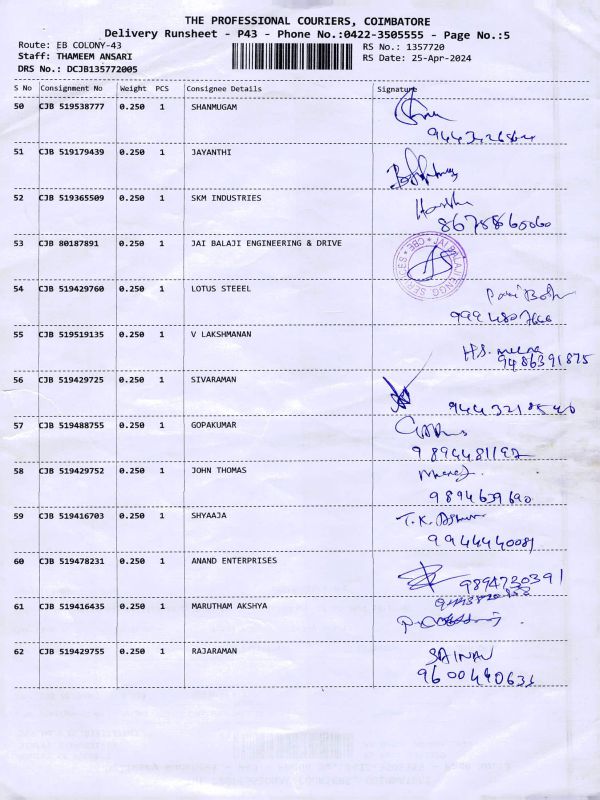 THE PROFESSIONAL COURIERS, COIMBATORE
Delivery Runsheet - P43 - Phone No.:0422-3505555 - Page No.:5
Route: EB COLONY-43
Staff: THAMEEM ANSARI
DRS No.: DCJB135772005
RS No.: 1357720
RS Date: 25-Apr-2024
S No Consignment No Weight PCS Consignee Details Signature
50 CJB 519538777 0.250 1 SHANMUGAM
51 CJB 519179439 0.250 1 JAYANTHI
52 CJB 519365509 0.250 1 SKM INDUSTRIES
53 CJB 80187891 0.250 1 JAI BALAJI ENGINEERING & DRIVE
54 CJB 519429760 0.250 1 LOTUS STEEEL
55 CJB 519519135 0.250 1 V LAKSHMANAN
H.S. meena
9486391875
56 CJB 519429725 0.250 1 SIVARAMAN
57 CJB 519488755 0.250 1 GOPAKUMAR
9894481192
58 CJB 519429752 0.250 1 JOHN THOMAS
9894639690
59 CJB 519416703 0.250 1 SHYAAJA
T.K.
9944440081
60 CJB 519478231 0.250 1 ANAND ENTERPRISES
9894720391
61 CJB 519416435 0.250 1 MARUTHAM AKSHYA
62 CJB 519429755 0.250 1 RAJARAMAN
SAINAV
9600440633